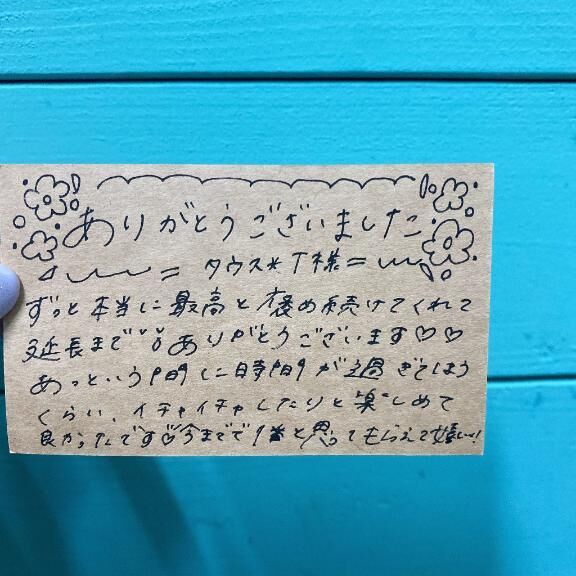 ありがとうございました
= タウス*T様 =
ずっと本当に最高と褒め続けてくれて
延長まで ありがとうございます♡♡
あっという間に時間が過ぎてしまう
くらい、イチャイチャしたりと楽しめて
良かったです♡今までで1番と思ってもらえて嬉しい!